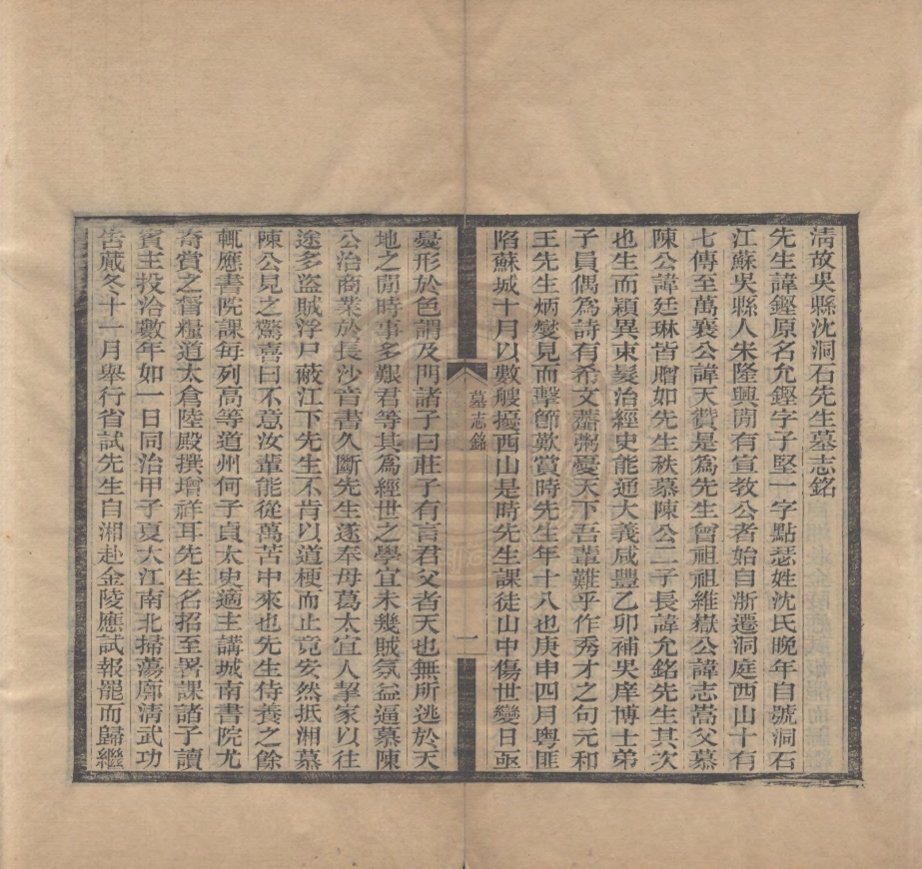 清故吳縣沈洞石先生墓志銘
先生諱鏗原名允鏗字子堅一字點瑟姓沈氏晚年自號洞石
江蘇吳縣人宋隆興閒有宣教公者始自浙遷洞庭西山十有
七傳至萬襄公諱天賛是爲先生曾祖祖維嶽公諱志嵩父慕
陳公諱廷琳皆贈如先生秩慕陳公二子長諱允銘先生其次
也生而穎異束髮治經史能通大義咸豐乙卯補吳庠博士弟
子員偶爲詩有希文虀粥憂天下吾輩難乎作秀才之句元和
王先生炳燮見而擊節歎賞時先生年十八也庚申四月粵匪
陷蘇城十月以數艘擾西山是時先生課徒山中傷世變日亟
墓志銘
一
憂形於色謂及門諸子曰莊子有言君父者天也無所逃於天
地之閒時事多艱君等其爲經世之學宜未幾賊氛益逼慕陳
公治商業於長沙音書久斷先生遂奉母葛太宜人挈家以往
途多盜賊浮尸蔽江下先生不肯以道梗而止竟安然抵湘慕
陳公見之驚喜曰不意汝輩能從萬苦中來也先生侍養之餘
輒應書院課每列高等道州何子貞太史適主講城南書院尤
奇賞之督糧道太倉陸殿撰增祥耳先生名招至署課諸子讀
賓主投洽數年如一日同治甲子夏大江南北掃蕩廓清武功
告蕆冬十一月舉行省試先生自湘赴金陵應試報罷而歸繼